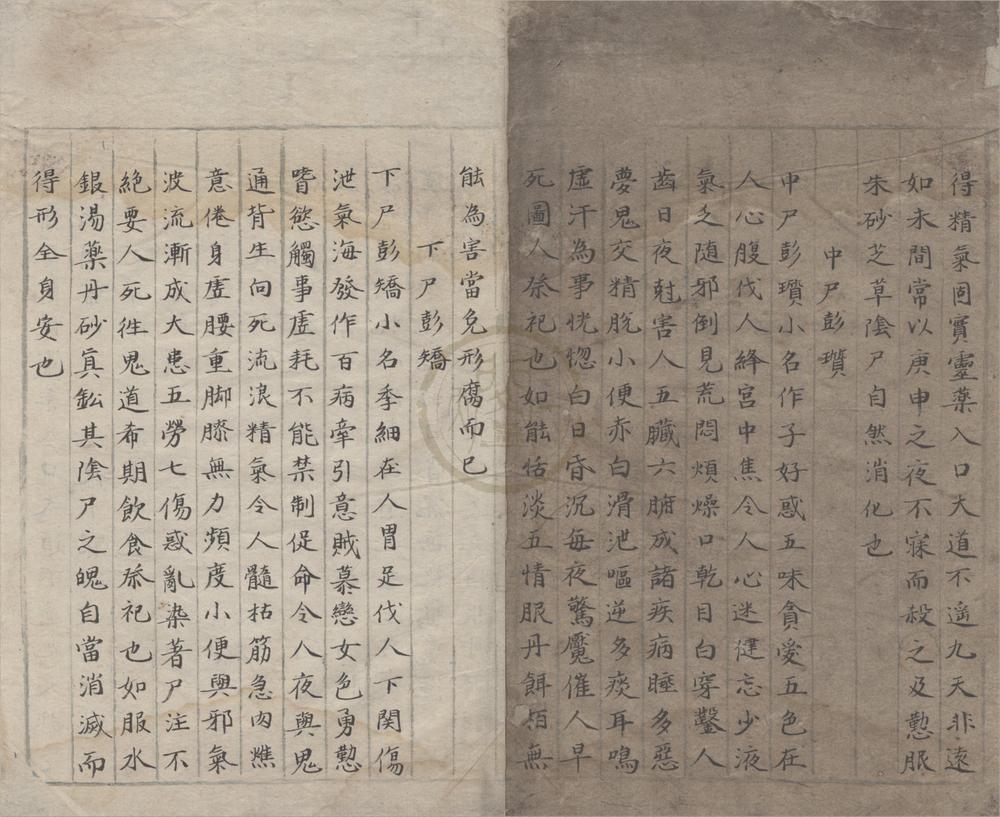 得精氣固實靈藥入口大道不遥九天非遠
如未間常以庚申之夜不寐而殺之及懃服
朱砂芝草陰尸自然消化也
中尸彭瓚
中尸彭瓚小名作子好惑五味貪愛五色在
人心腹伐人絳宮中焦令人心迷健忘少液
氣乏随邪倒見荒悶煩燥口乾目白穿鑿人
齒日夜尅害人五臟六腑成諸疾病睡多惡
夢鬼交精脫小便赤白滑泄嘔逆多痰耳鳴
虛汗為事恍惚白日昏沉每夜驚魘催人早
死圖人祭祀也如能恬淡五情服丹餌栢無
能為害當免形腐而已
下尸彭矯
下尸彭矯小名季細在人胃足伐人下関傷
泄氣海發作百病牽引意賊慕戀女色勇懃
嗜慾觸事虛耗不能禁制促命令人夜與鬼
通背生向死流浪精氣令人髓枯筋急肉燋
意倦身虛腰重脚膝無力頻度小便與邪氣
波流漸成大患五勞七傷惑亂染著尸注不
絕要人死徃鬼道希期飲食祭祀也如服水
銀湯藥丹砂真鈆其陰尸之魄自當消滅而
得形全身安也